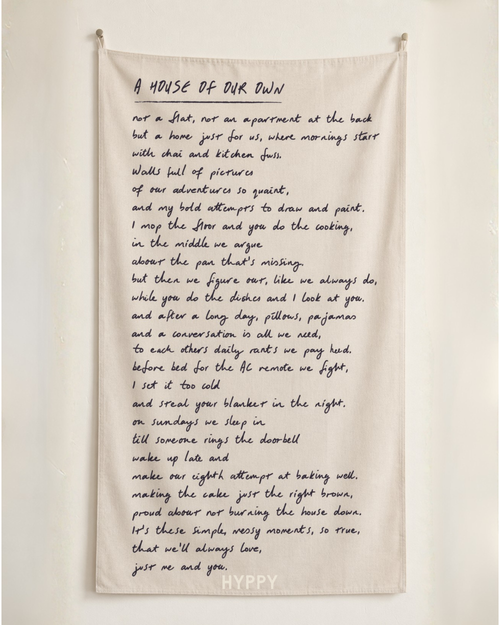 A HOUSE OF OUR OWN
not a flat, not an apartment at the back
but a home just for us, where mornings start
with chai and kitchen fuss.
Walls full of pictures
of our adventures so quaint,
and my bold attempts to draw and paint.
I mop the floor and you do the cooking,
in the middle we argue
about the pan that's missing.
but then we figure out, like we always do,
while you do the dishes and I look at you.
and after a long day, pillows, pajamas
and a conversation is all we need,
to each others daily rants we pay heed.
before bed for the AC remote we fight,
I set it too cold
and steal your blanket in the night.
on sundays we sleep in
till someone rings the doorbell
wake up late and
make our eighth attempt at baking well.
making the cake just the right brown,
proud about not burning the house down.
It's these simple, messy moments, so true,
that we'll always love,
just me and you.
HYPPY